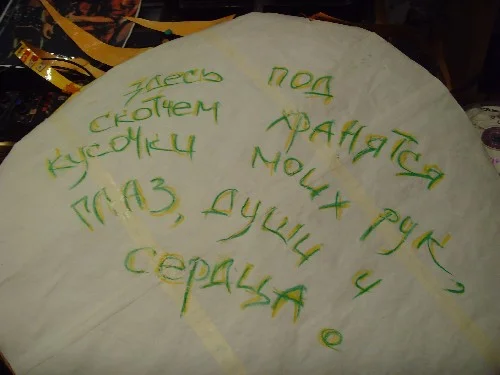 здесь под
скотчем хранятся
кусочки моих рук,
глаз, души и
сердца.